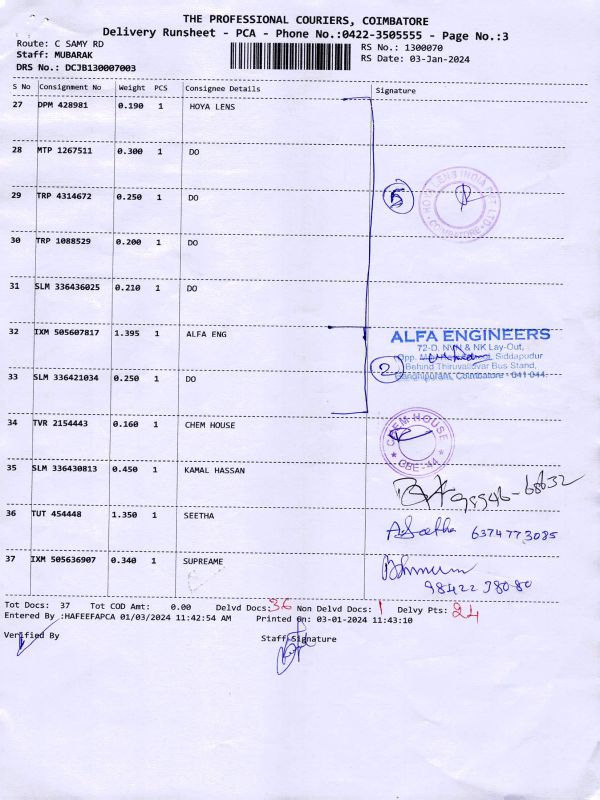 THE PROFESSIONAL COURIERS, COIMBATORE
Delivery Runsheet - PCA - Phone No.:0422-3505555 - Page No.:3
Route: C SAMY RD
RS No.: 1300070
Staff: MUBARAK
RS Date: 03-Jan-2024
DRS No.: DCJB130007003
S No Consignment No Weight PCS Consignee Details Signature
27 DPM 428981 0.190 1 HOYA LENS
28 MTP 1267511 0.300 1 DO
29 TRP 4314672 0.250 1 DO
5
HOYA LENS INDIA PVT LTD
COIMBATORE
30 TRP 1088529 0.200 1 DO
31 SLM 336436025 0.210 1 DO
32 IXM 505607817 1.395 1 ALFA ENG
ALFA ENGINEERS
72-D, NVN & NK Lay-Out,
Opp. Siddapudur
Behind Thiruvalluvar Bus Stand,
Gandhipuram, Coimbatore - 641 044.
2
33 SLM 336421034 0.250 1 DO
34 TVR 2154443 0.160 1 CHEM HOUSE
CHEM HOUSE
CBE-44
35 SLM 336430813 0.450 1 KAMAL HASSAN
98946-68632
36 TUT 454448 1.350 1 SEETHA
A.Seetha 6374773085
37 IXM 505636907 0.340 1 SUPREAME
98422 38080
Tot Docs: 37 Tot COD Amt: 0.00 Delvd Docs: 36 Non Delvd Docs: 1 Delvy Pts: 24
Entered By :HAFEEFAPCA 01/03/2024 11:42:54 AM Printed On: 03-01-2024 11:43:10
Verified By Staff Signature